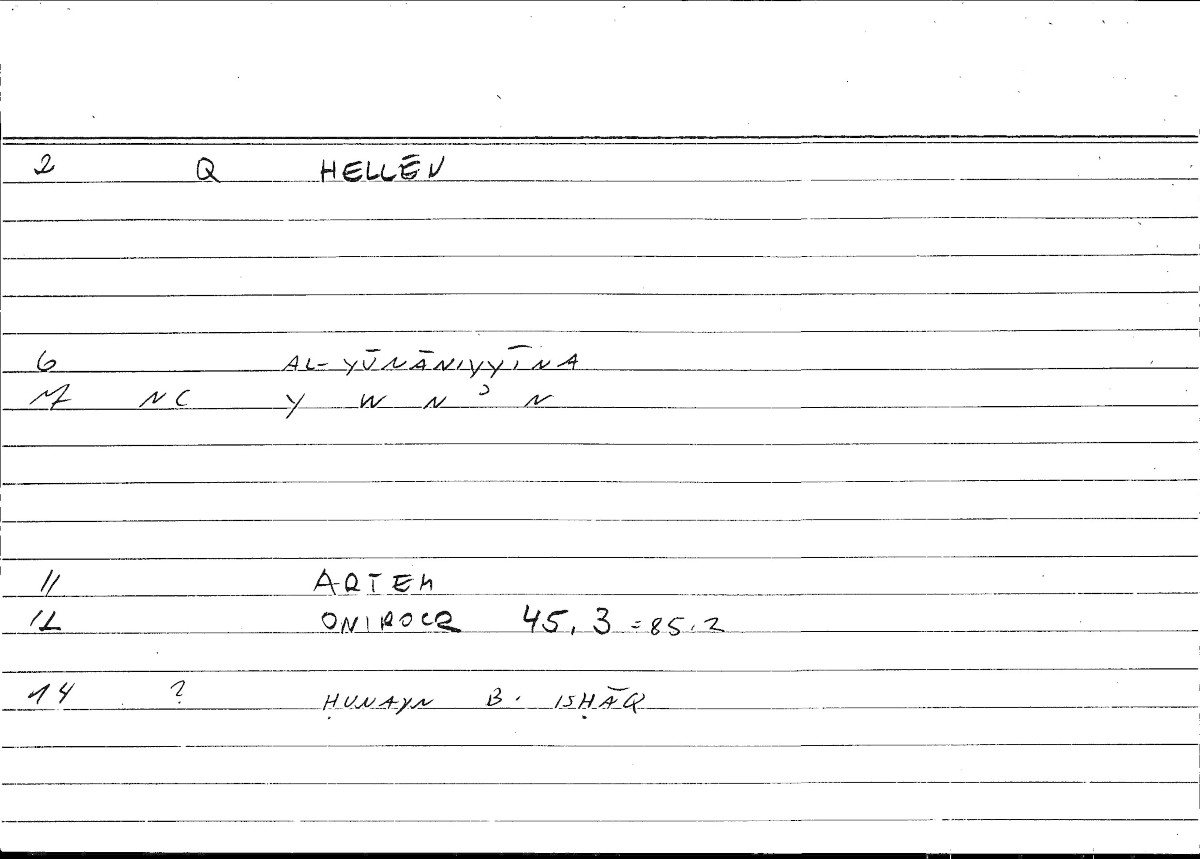 2 Q HELLĒN
6 AL-YŪNĀNIYYĪNA
7 NC Y W N ʾ N
11 ARTEM
12 ONIROCR 45,3 = 85.2
14 ? ḤUNAYN B. ISḤĀQ